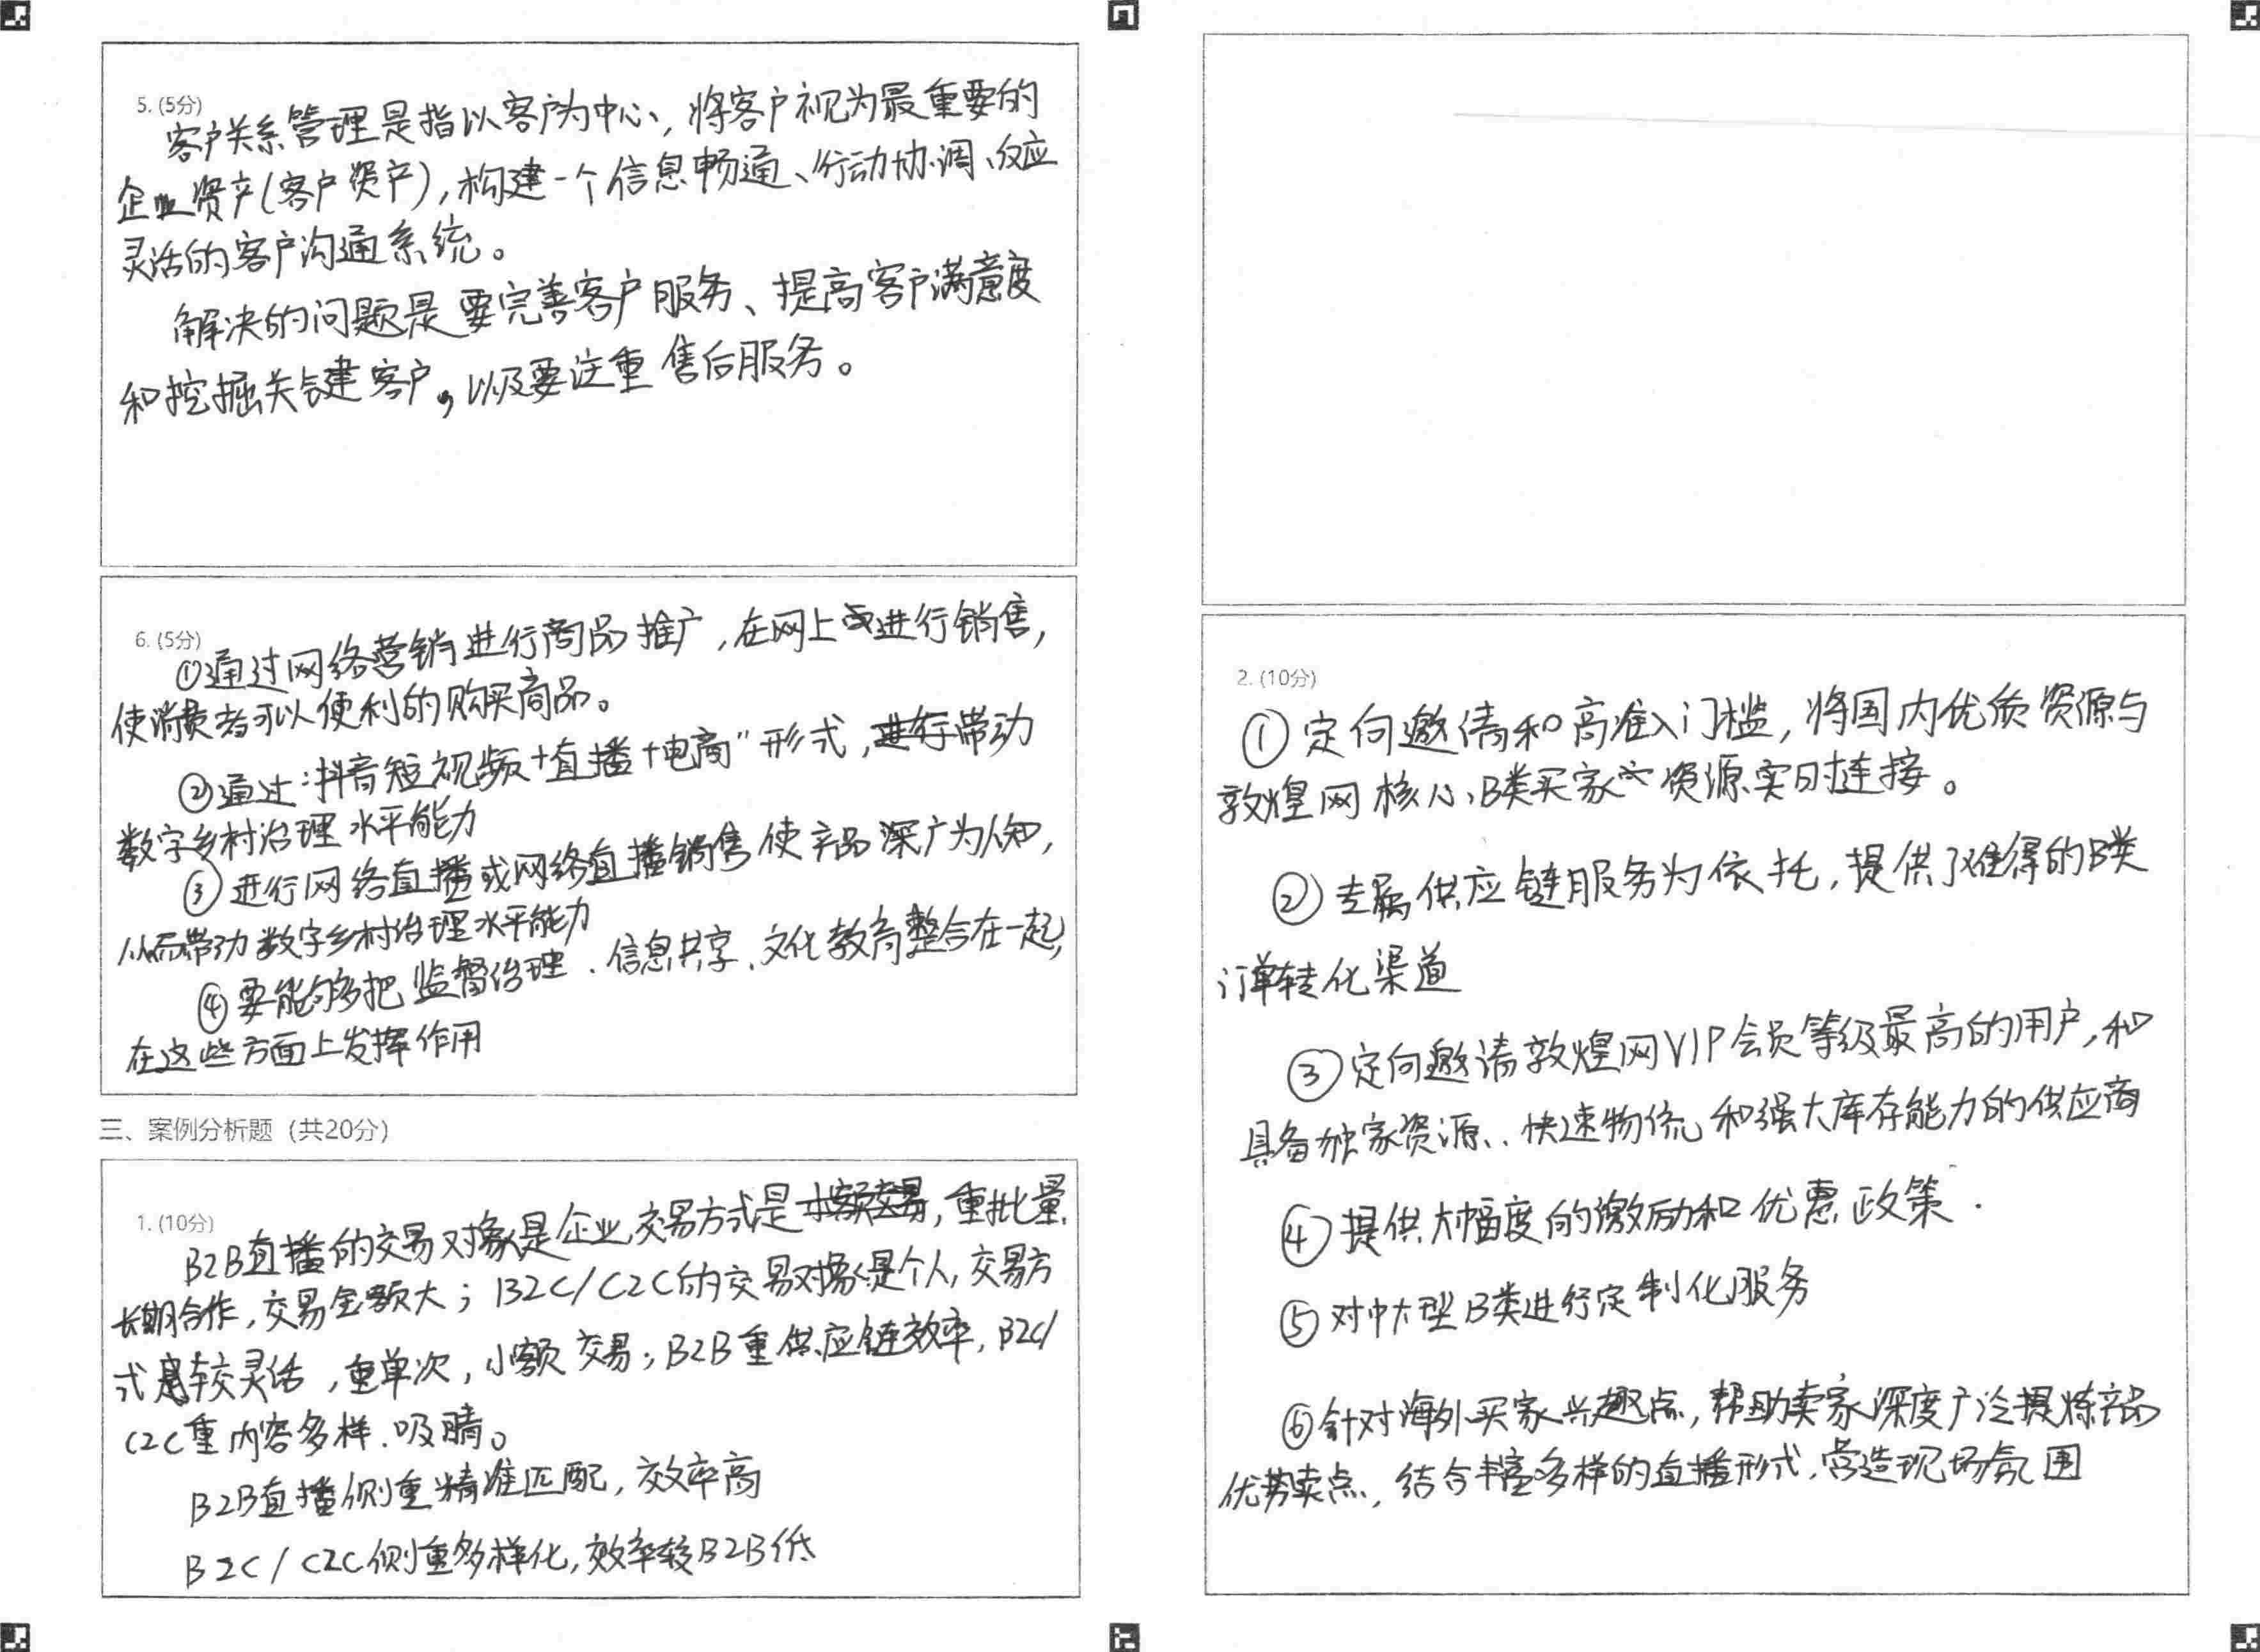 5. (5分)
客户关系管理是指以客户为中心,将客户视为最重要的
企业资产(客户资产),构建一个信息畅通、行动协调、反应
灵活的客户沟通系统。
解决的问题是要完善客户服务、提高客户满意度
和挖掘关键客户,以及要注重售后服务。
6. (5分)
①通过网络营销进行商品推广,在网上进行销售,
使消费者可以便利的购买商品。
②通过:抖音短视频+直播+电商"形式,带动
数字乡村治理水平能力
③进行网络直播或网络直播销售使产品深广为人知,
从而带动数字乡村治理水平能力
④要能够多把监督治理、信息共享、文化教育整合在一起,
在这些方面上发挥作用
三、案例分析题 (共20分)
1. (10分)
B2B直播的交易对象是企业,交易方式是小额交易,重批量、
长期合作,交易金额大;B2C/C2C的交易对象是个人,交易方
式较灵活,重单次,小额交易;B2B重供应链效率,B2C/
C2C重内容多样、吸睛。
B2B直播侧重精准匹配,效率高
B2C/C2C侧重多样化,效率较B2B低
2. (10分)
①定向邀请和高准入门槛,将国内优质资源与
敦煌网核心B类买家资源实时连接。
②专属供应链服务为依托,提供了难得的B类
订单转化渠道
③定向邀请敦煌网VIP会员等级最高的用户,和
具备独家资源、快速物流和强大库存能力的供应商
④提供大幅度的激励和优惠政策.
⑤对中大型B类进行定制化服务
⑥针对海外买家兴趣点,帮助卖家深度广泛提炼产品
优势卖点,结合丰富多样的直播形式,营造现场氛围